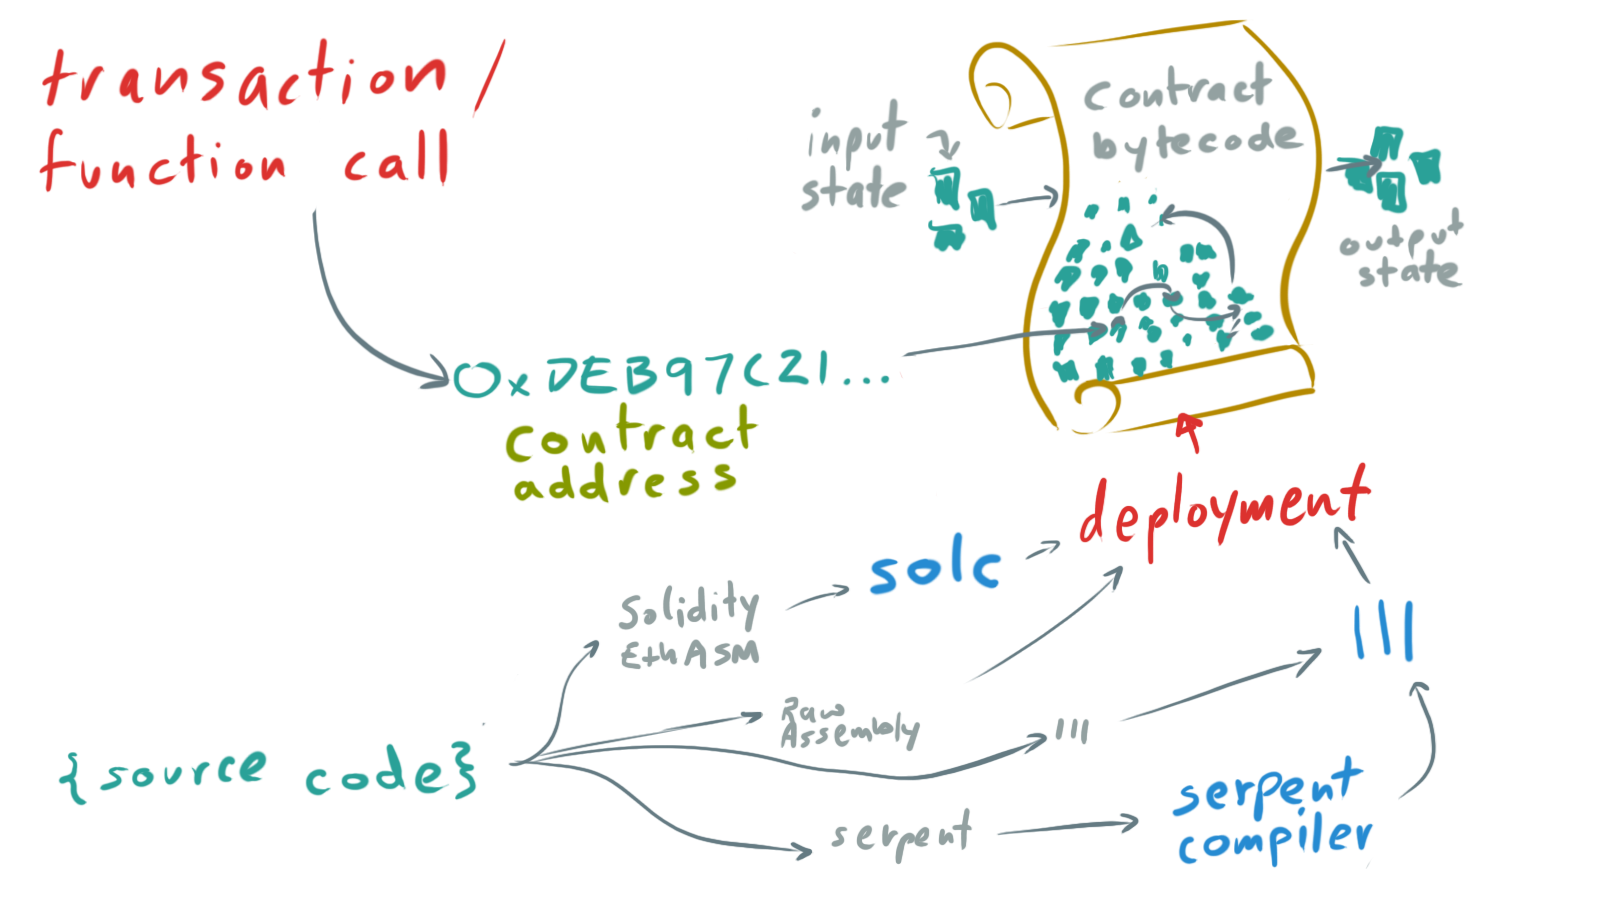 transaction/
function call
input
state
contract
bytecode
output
state
0xDEB97C21...
contract
address
deployment
solc
Solidity
EthASM
lll
Raw
Assembly
lll
{source code}
serpent
compiler
serpent